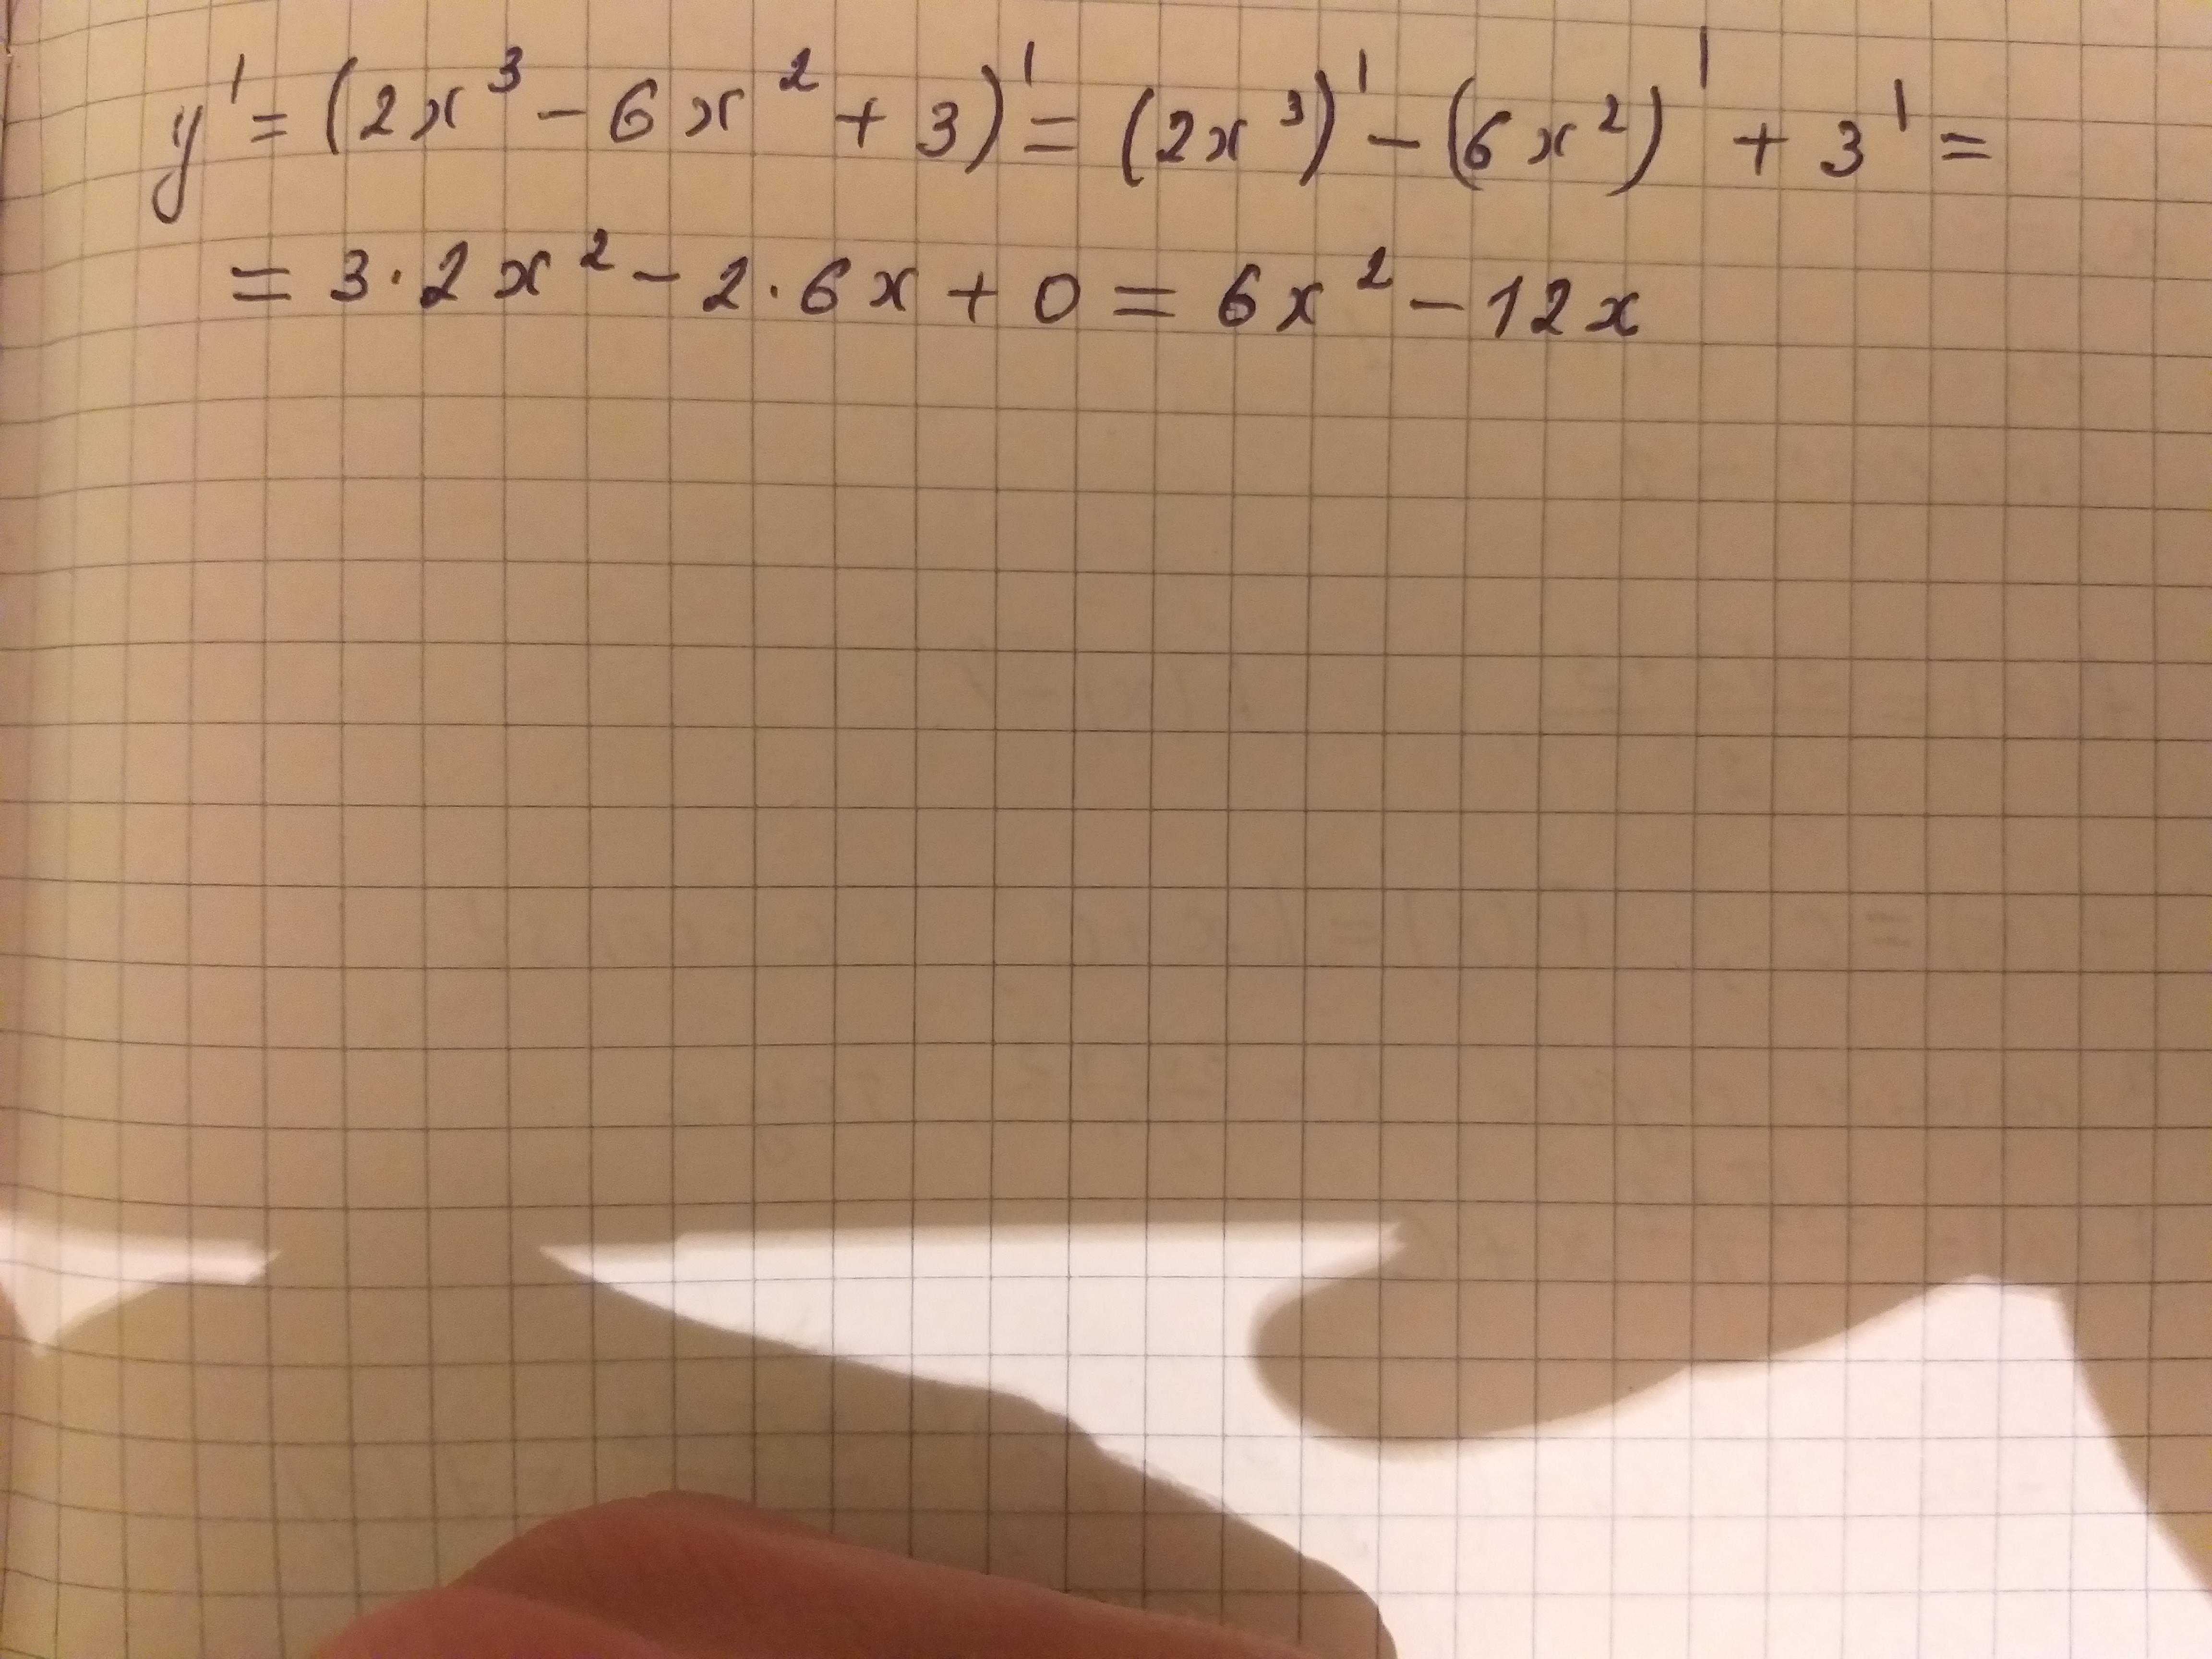 y' = (2x³ - 6x² + 3)' = (2x³)' - (6x²)' + 3' =
= 3 · 2x² - 2 · 6x + 0 = 6x² - 12x